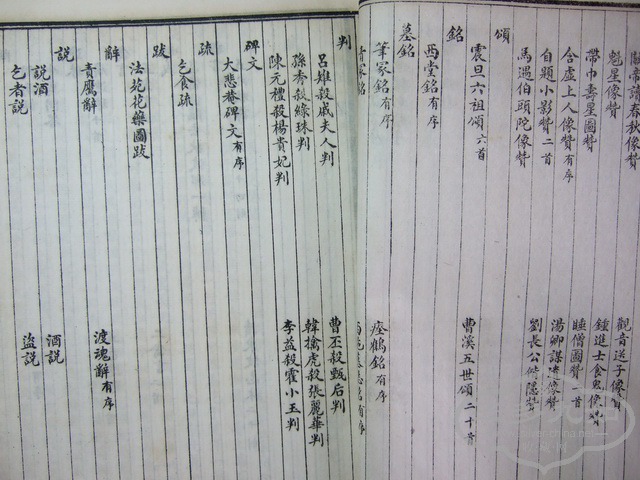 魁星像贊
帶巾壽星圖贊
鍾進士食鬼像贊
合虛上人像贊有序
睡僧圖贊
自題小影贊二首
馬遇伯頭陀像贊
劉長公
頌
震旦六祖頌六首
曹溪五世頌二十首
銘
西堂銘有序
墓銘
筆冢銘有序
瘞鶴銘有序
判
呂雉殺戚夫人判
曹丕殺甄后判
孫秀殺綠珠判
韓擒虎殺張麗華判
陳元禮殺楊貴妃判
李益殺霍小玉判
碑文
大悲菴碑文有序
疏
乞食疏
跋
法苑花藥圖跋
辭
責鷹辭
渡魂辭有序
說
說酒
酒說
乞者說
盜說